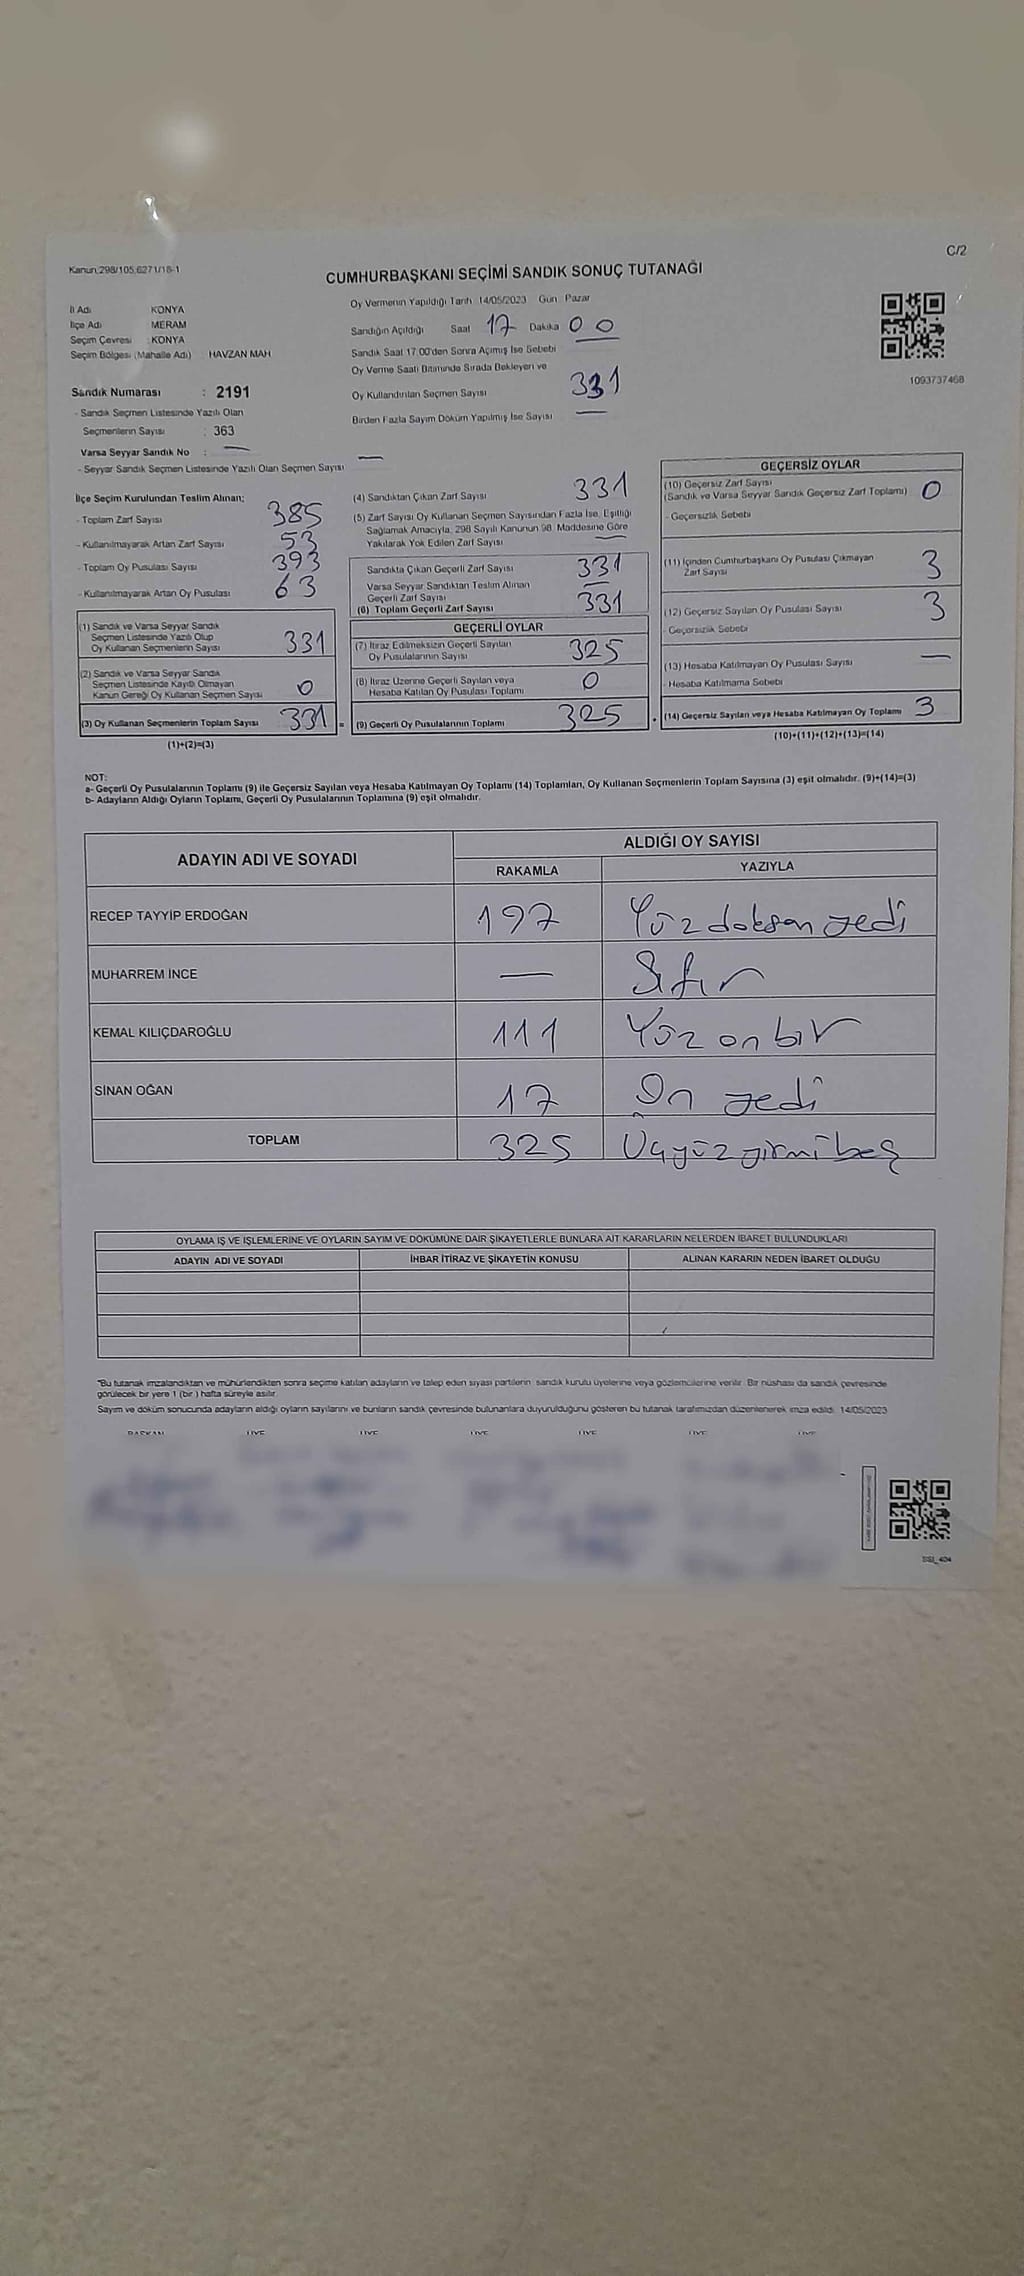 C/2
Kanun;298/105,6271/18-1
CUMHURBAŞKANI SEÇİMİ SANDIK SONUÇ TUTANAĞI
İl Adı KONYA
İlçe Adı MERAM
Seçim Çevresi : KONYA
Seçim Bölgesi (Mahalle Adı) HAVZAN MAH
Sandık Numarası : 2191
- Sandık Seçmen Listesinde Yazılı Olan
Seçmenlerin Sayısı : 363
Varsa Seyyar Sandık No : —
- Seyyar Sandık Seçmen Listesinde Yazılı Olan Seçmen Sayısı —
Oy Vermenin Yapıldığı Tarih 14/05/2023 Gün Pazar
Sandığın Açıldığı Saat 17 Dakika 00
Sandık Saat 17:00'den Sonra Açmış İse Sebebi
Oy Verme Saati Bitiminde Sırada Bekleyen ve
Oy Kullandırılan Seçmen Sayısı 331
Birden Fazla Sayım Döküm Yapılmış İse Sayısı —
1093737468
İlçe Seçim Kurulundan Teslim Alınan;
- Toplam Zarf Sayısı 385
- Kullanılmayarak Artan Zarf Sayısı 53
- Toplam Oy Pusulası Sayısı 393
- Kullanılmayarak Artan Oy Pusulası 63
(1) Sandık ve Varsa Seyyar Sandık
Seçmen Listesinde Yazılı Olup
Oy Kullanan Seçmenlerin Sayısı 331
(2) Sandık ve Varsa Seyyar Sandık
Seçmen Listesinde Kayıtlı Olmayan
Kanun Gereği Oy Kullanan Seçmen Sayısı 0
(3) Oy Kullanan Seçmenlerin Toplam Sayısı 331 =
(1)+(2)=(3)
(4) Sandıktan Çıkan Zarf Sayısı 331
(5) Zarf Sayısı Oy Kullanan Seçmen Sayısından Fazla İse, Eşitliği
Sağlamak Amacıyla, 298 Sayılı Kanunun 98. Maddesine Göre
Yakılarak Yok Edilen Zarf Sayısı —
Sandıkta Çıkan Geçerli Zarf Sayısı 331
Varsa Seyyar Sandıktan Teslim Alınan
Geçerli Zarf Sayısı —
(6) Toplam Geçerli Zarf Sayısı 331
GEÇERLİ OYLAR
(7) İtiraz Edilmeksizin Geçerli Sayılan
Oy Pusulalarının Sayısı 325
(8) İtiraz Üzerine Geçerli Sayılan veya
Hesaba Katılan Oy Pusulası Toplamı 0
(9) Geçerli Oy Pusulalarının Toplamı 325
GEÇERSİZ OYLAR
(10) Geçersiz Zarf Sayısı
(Sandık ve Varsa Seyyar Sandık Geçersiz Zarf Toplamı) 0
- Geçersizlik Sebebi
(11) İçinden Cumhurbaşkanı Oy Pusulası Çıkmayan
Zarf Sayısı 3
(12) Geçersiz Sayılan Oy Pusulası Sayısı 3
- Geçersizlik Sebebi
(13) Hesaba Katılmayan Oy Pusulası Sayısı —
- Hesaba Katılmama Sebebi
(14) Geçersiz Sayılan veya Hesaba Katılmayan Oy Toplamı 3
(10)+(11)+(12)+(13)=(14)
NOT:
a- Geçerli Oy Pusulalarının Toplamı (9) ile Geçersiz Sayılan veya Hesaba Katılmayan Oy Toplamı (14) Toplamları, Oy Kullanan Seçmenlerin Toplam Sayısına (3) eşit olmalıdır. (9)+(14)=(3)
b- Adayların Aldığı Oyların Toplamı, Geçerli Oy Pusulalarının Toplamına (9) eşit olmalıdır.
ADAYIN ADI VE SOYADI
ALDIĞI OY SAYISI
RAKAMLA YAZIYLA
RECEP TAYYİP ERDOĞAN 197 Yüz doksan yedi
MUHARREM İNCE — Sıfır
KEMAL KILIÇDAROĞLU 111 Yüz on bir
SİNAN OĞAN 17 On yedi
TOPLAM 325 Üçyüz yirmi beş
OYLAMA İŞ VE İŞLEMLERİNE VE OYLARIN SAYIM VE DÖKÜMÜNE DAİR ŞİKAYETLERLE BUNLARA AİT KARARLARIN NELERDEN İBARET BULUNDUKLARI
ADAYIN ADI VE SOYADI İHBAR İTİRAZ VE ŞİKAYETİN KONUSU ALINAN KARARIN NEDEN İBARET OLDUĞU
*Bu tutanak imzalandıktan ve mühürlendikten sonra seçime katılan adayların ve talep eden siyasi partilerin sandık kurulu üyelerine veya gözlemcilerine verilir. Bir nüshası da sandık çevresinde
görülecek bir yere 1 (bir) hafta süreyle asılır.
Sayım ve döküm sonucunda adayların aldığı oyların sayılarını ve bunların sandık çevresinde bulunanlara duyurulduğunu gösteren bu tutanak tarafımızdan düzenlenerek imza edildi. 14/05/2023
BAŞKAN ÜYE ÜYE ÜYE ÜYE ÜYE ÜYE
SSI_404